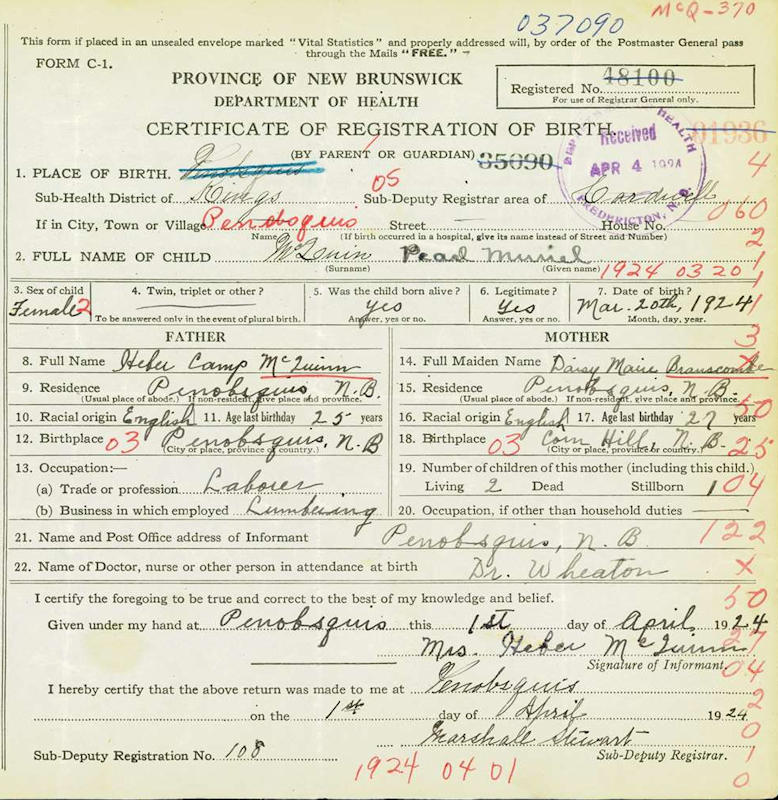 037090 McQ-370
This form if placed in an unsealed envelope marked "Vital Statistics" and properly addressed will, by order of the Postmaster General pass
through the Mails "FREE."
FORM C-1.
PROVINCE OF NEW BRUNSWICK
DEPARTMENT OF HEALTH
Registered No. 48100
For use of Registrar General only.
CERTIFICATE OF REGISTRATION OF BIRTH. 01936
(BY PARENT OR GUARDIAN) 35090
DEPARTMENT OF HEALTH
Received
APR 4 1924
FREDERICTON, N.B.
1. PLACE OF BIRTH. Penobsquis 4
Sub-Health District of Kings 05 Sub-Deputy Registrar area of Cardwell
If in City, Town or Village Penobsquis Street House No. 060
Name (If birth occurred in a hospital, give its name instead of Street and Number) 2
2. FULL NAME OF CHILD McQuinn Pearl Muriel 1
(Surname) (Given name) 1924 03 20 1
3. Sex of child 4. Twin, triplet or other? 5. Was the child born alive? 6. Legitimate? 7. Date of birth?
Female 2 yes Yes Mar. 20th, 1924 1
To be answered only in the event of plural birth. Answer, yes or no. Answer, yes or no. Month, day, year.
FATHER MOTHER 3
8. Full Name Heber Camp McQuinn 14. Full Maiden Name Daisy Marie Branscombe X
9. Residence Penobsquis, N.B. 15. Residence Penobsquis, N.B.
(Usual place of abode.) If non-resident, give place and province. (Usual place of abode.) If non-resident, give place and province.
10. Racial origin English 11. Age last birthday 25 years 16. Racial origin English 17. Age last birthday 27 years 50
12. Birthplace 03 Penobsquis, N.B 18. Birthplace 03 Corn Hill, N.B. 25
(City or place, province or country.) (City or place, province or country.)
13. Occupation:— 19. Number of children of this mother (including this child.)
(a) Trade or profession Laborer Living 2 Dead Stillborn 1 04
(b) Business in which employed Lumbering 20. Occupation, if other than household duties —
21. Name and Post Office address of Informant Penobsquis, N.B. 122
22. Name of Doctor, nurse or other person in attendance at birth Dr. Wheaton X
I certify the foregoing to be true and correct to the best of my knowledge and belief. 50
Given under my hand at Penobsquis this 1st day of April 1924
Mrs. Heber McQuinn 27
Signature of Informant. 04
I hereby certify that the above return was made to me at Penobsquis 2
on the 1st day of April 1924 0
Marshall Stewart 1
Sub-Deputy Registration No. 108 Sub-Deputy Registrar. 0
1924 04 01